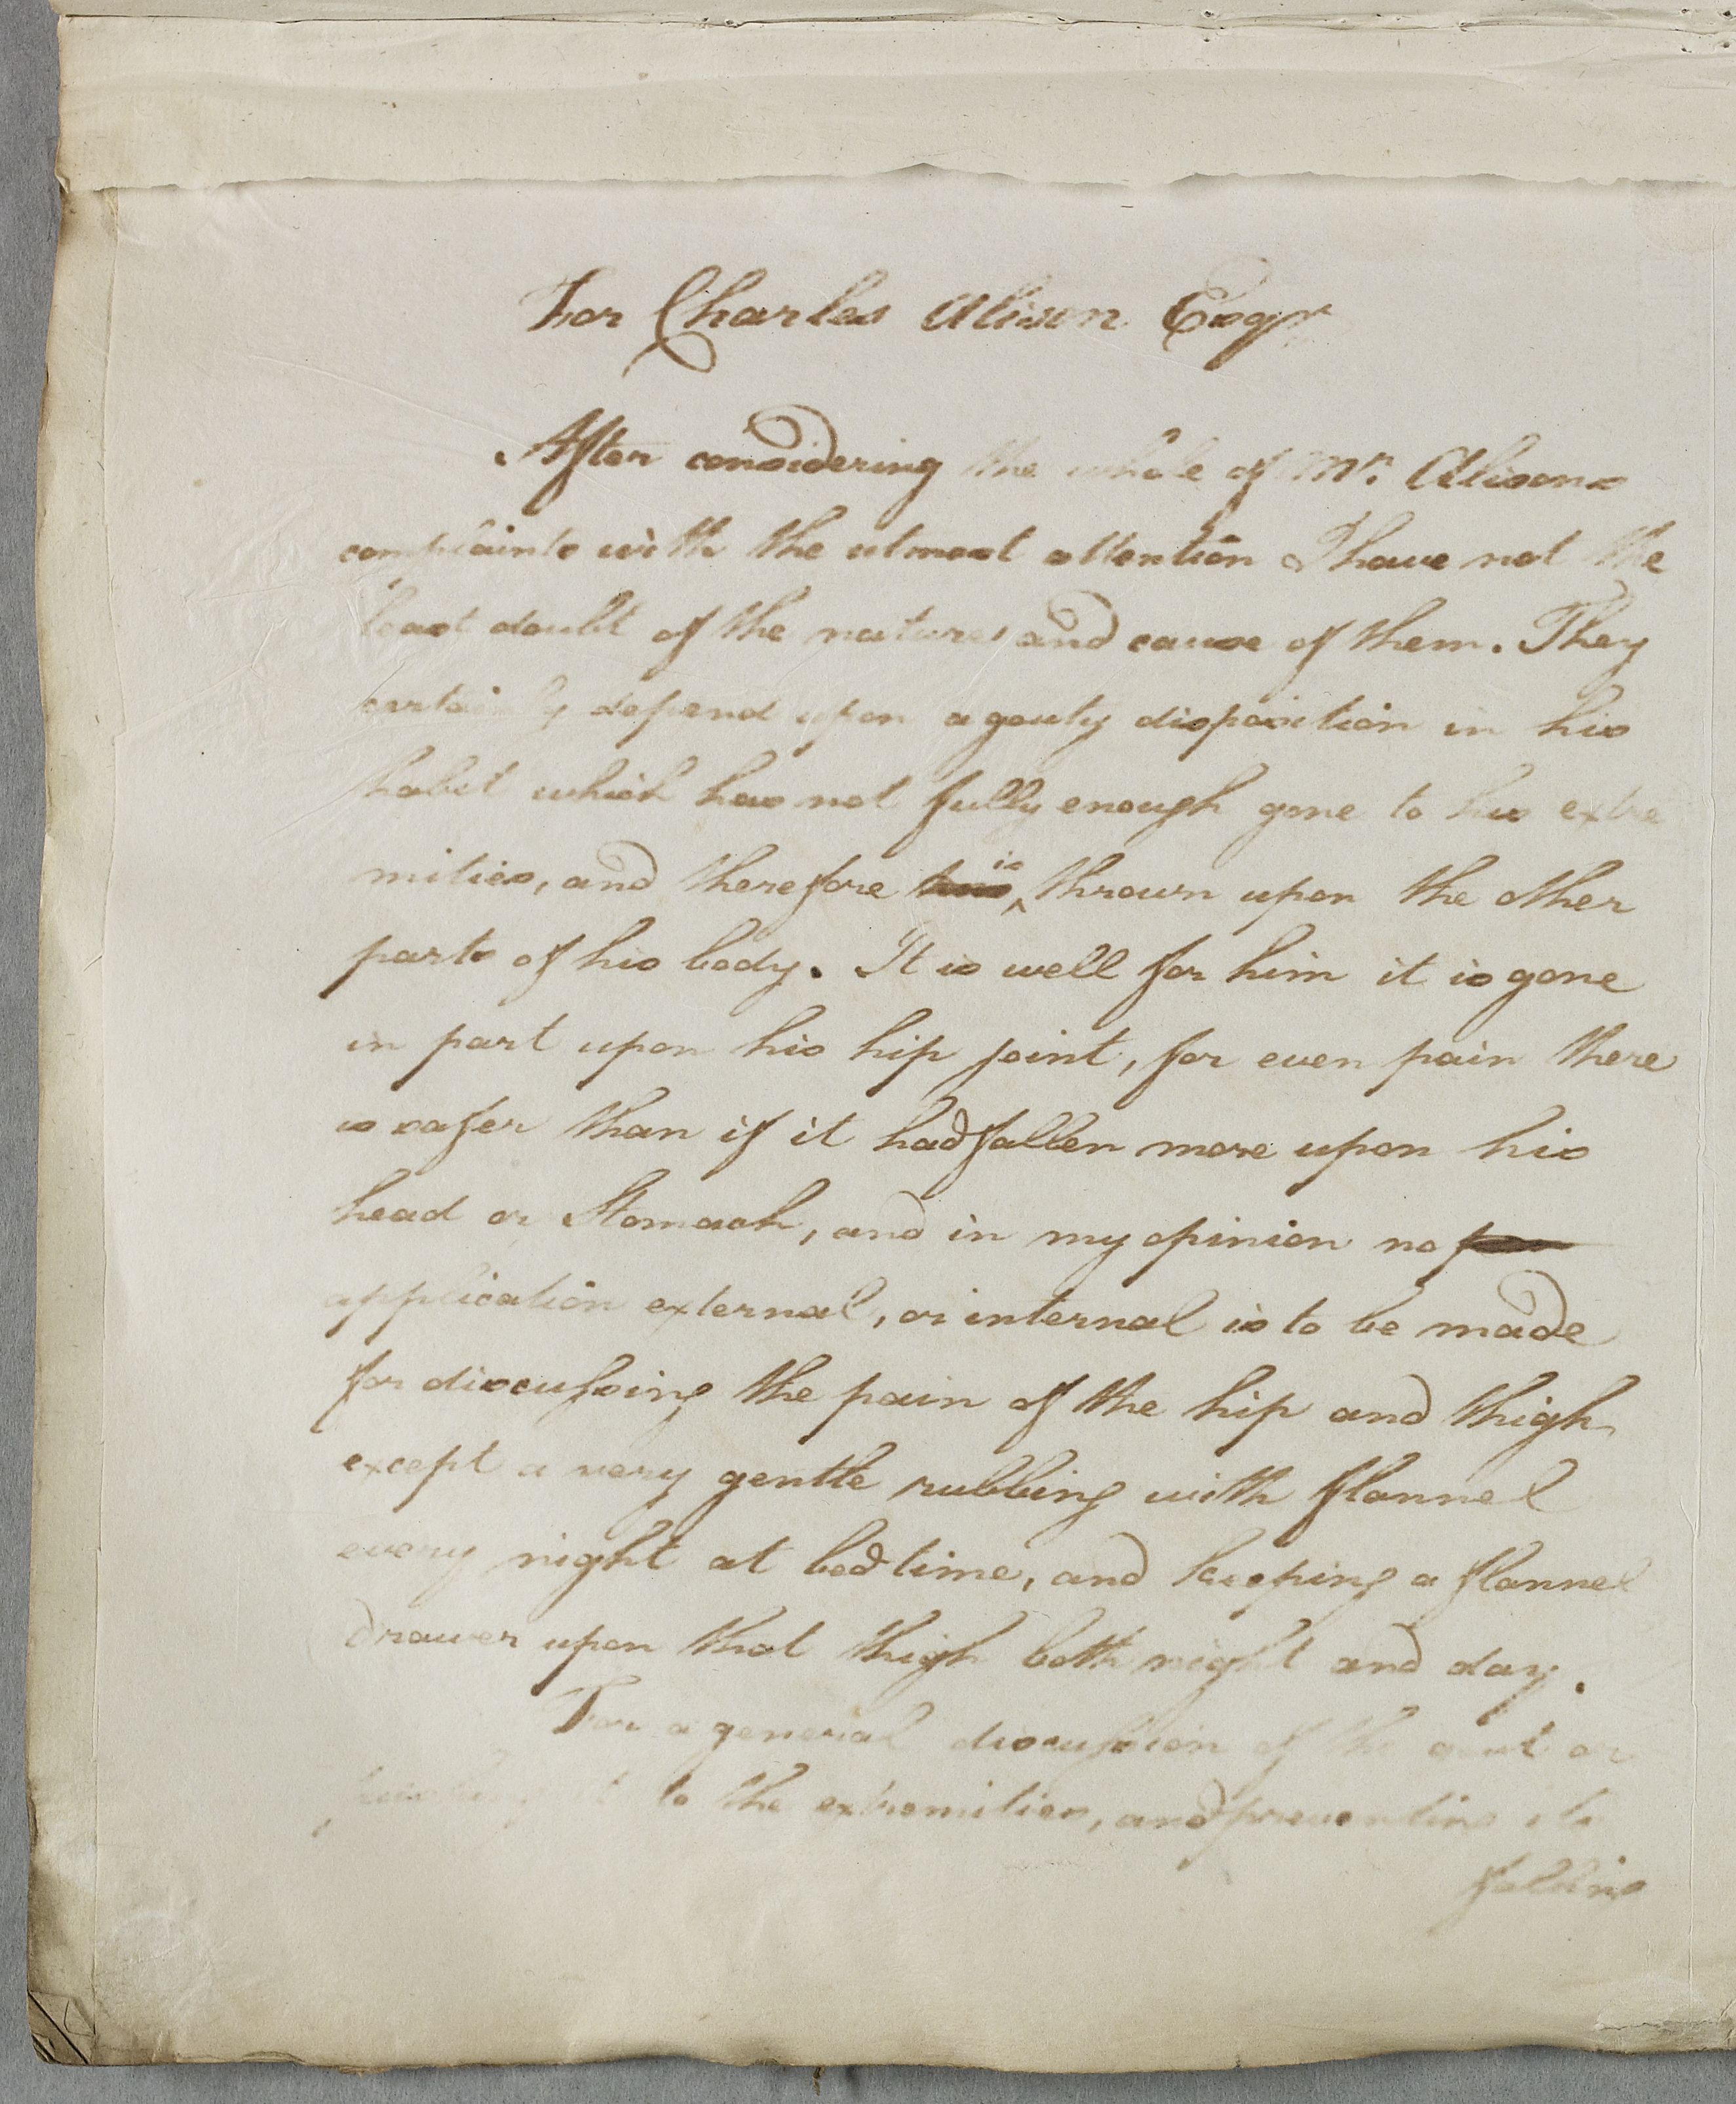 For Charles Alison Esqr.
After considering the whole of Mr. Alisons
complaints with the utmost attention I have not the
least doubt of the nature and cause of them. They
certainly depend upon a gouty disposition in his
habit which has not fully enough gone to his extre
mities, and therefore is thrown upon the other
parts of his body. It is well for him it is gone
in part upon his hip joint, for even pain there
is safer than if it had fallen more upon his
head or Stomach, and in my opinion no
application external, or internal is to be made
for discussing the pain of the hip and thigh
except a very gentle rubbing with flannel
every night at bedtime, and keeping a flannel
drawer upon that thigh both night and day.
For a general discussion of the gout or
it to the extremities, and preventing its
falling